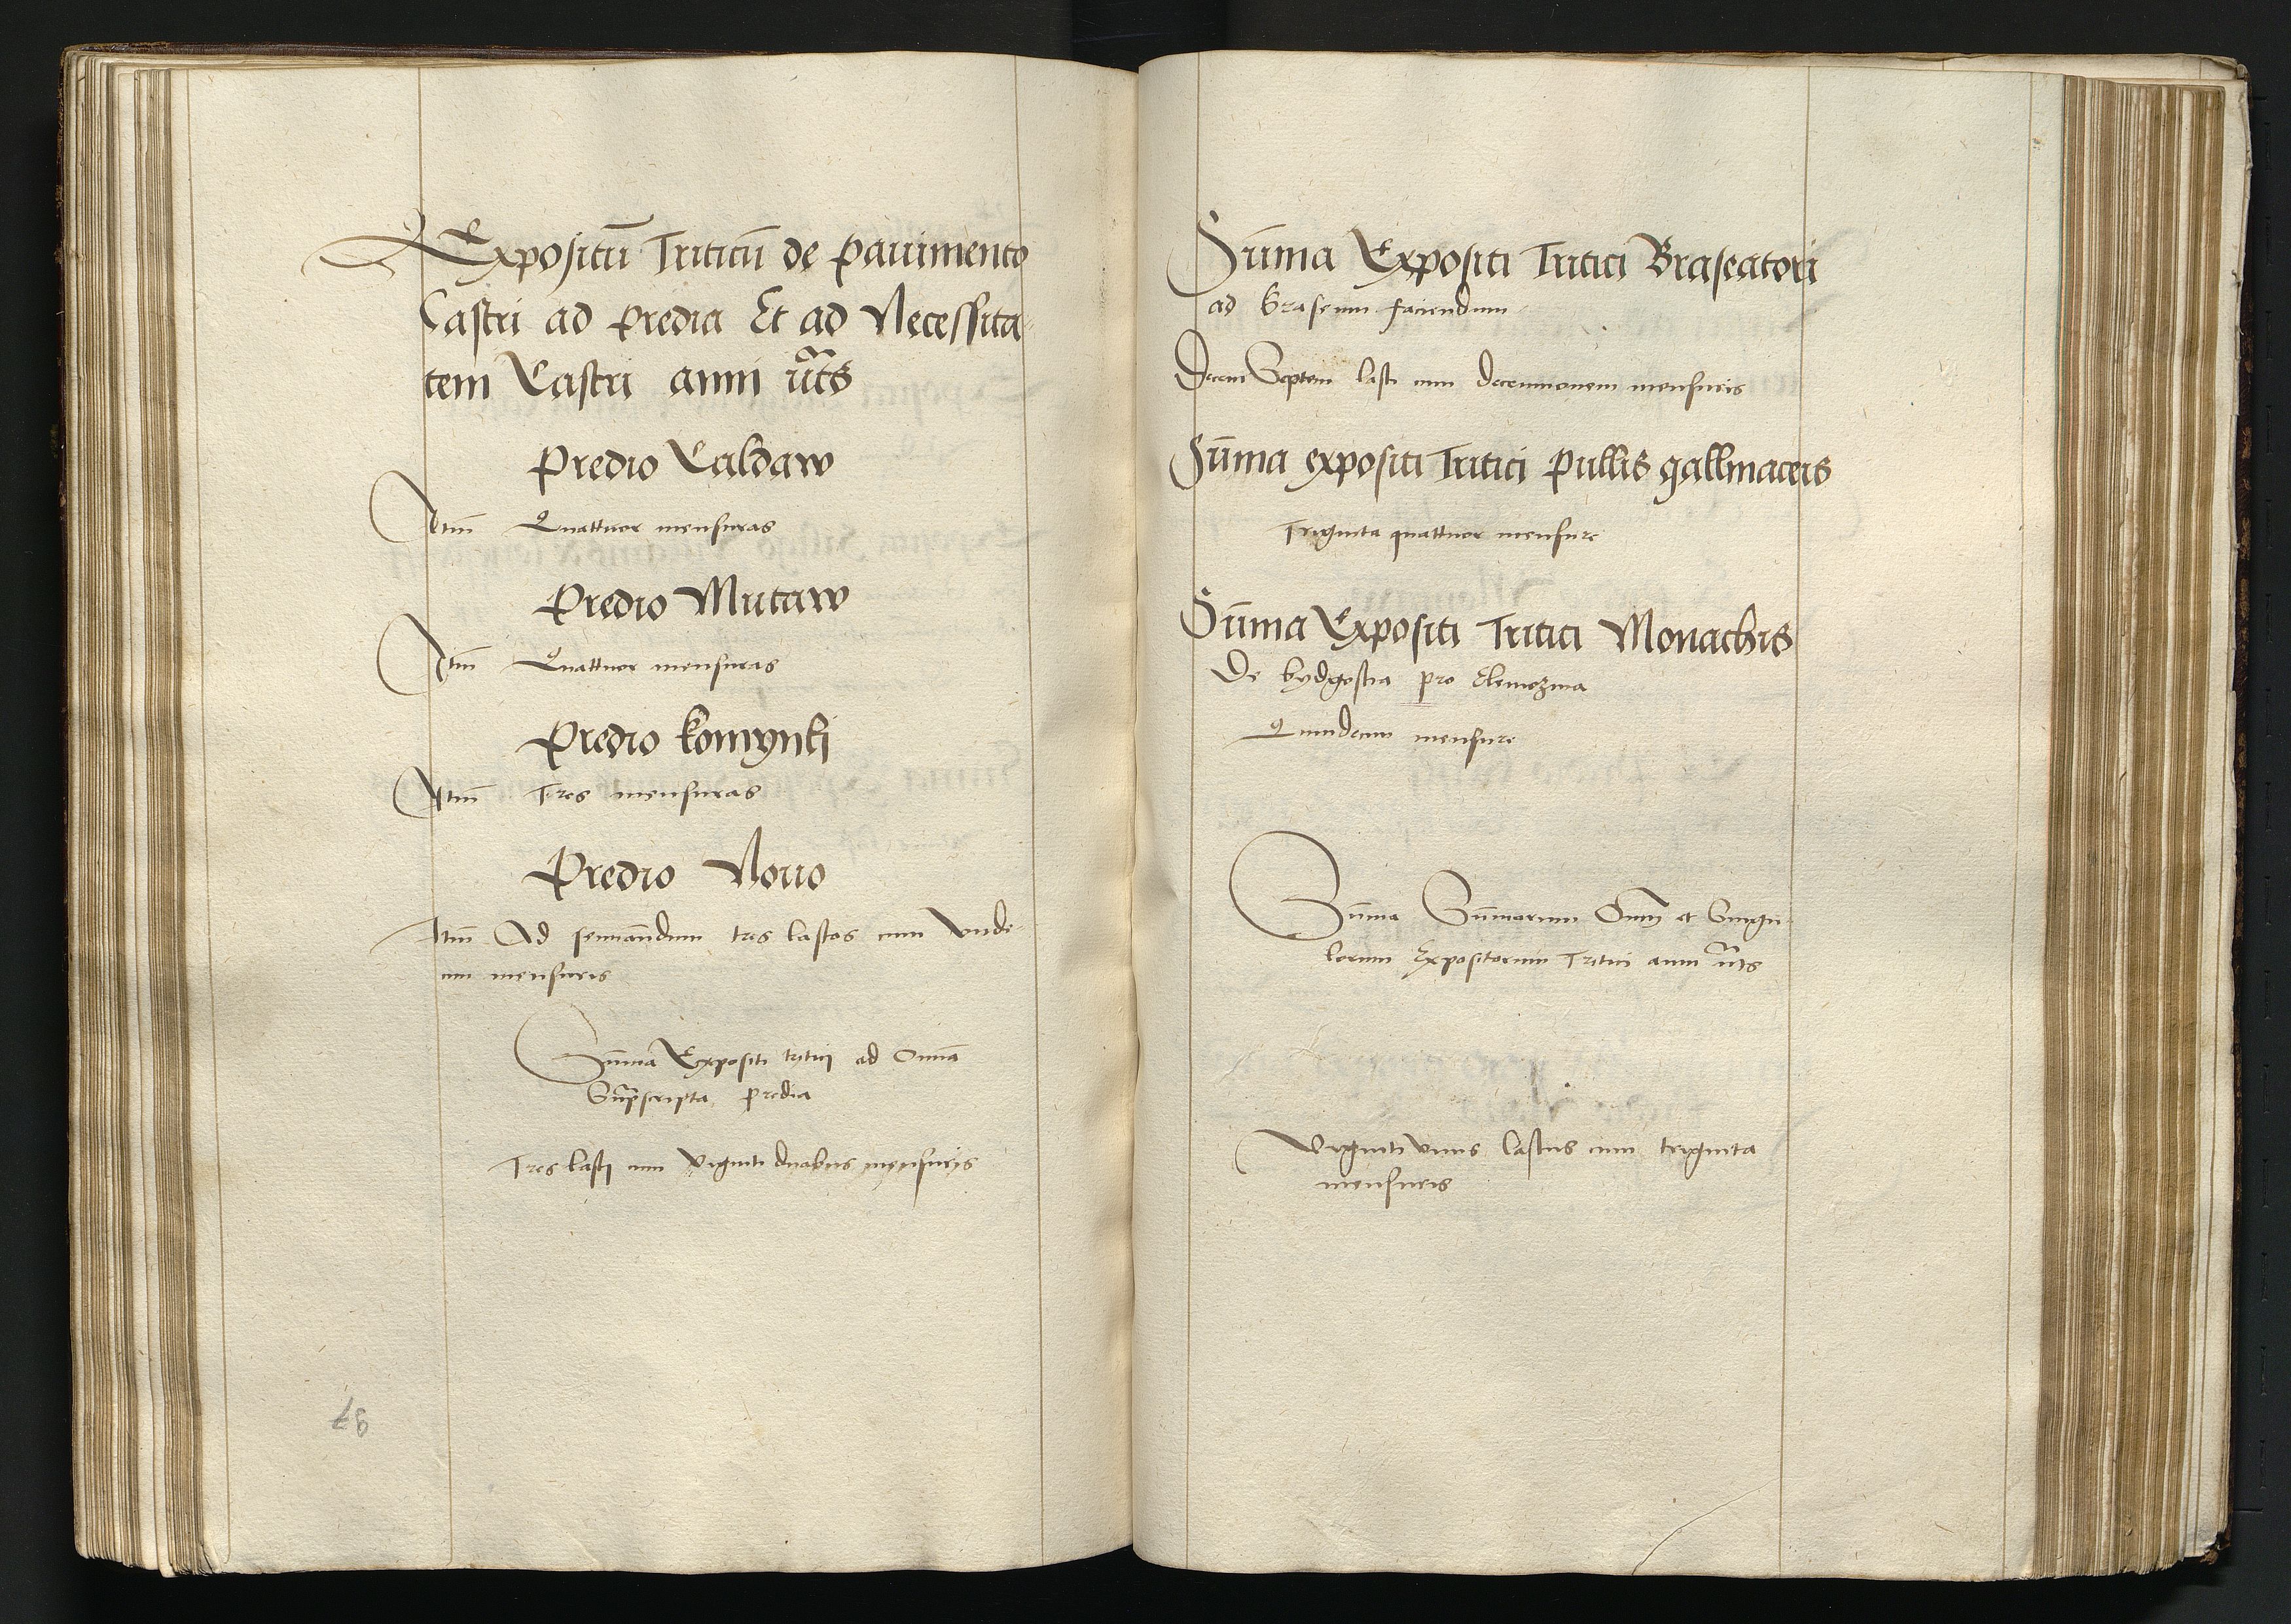 Expositū Triticū de Pauimento
Castri ad Predia Et ad Necessita-
tem Castri anni ut̃s
Predio Caldaw
Itm̄ Quattuor mensuras
Predio Mutaw
Itm̄ Quattuor mensuras
Predio Komynki
Itm̄ Tres mensuras
Predio Nouo
Itm̄ Ad seminandum tres lastos cum Vnde-
cim mensuris
Sūma Expositi tritici ad Omīa
Supscripta predia
Tres lasti cum viginti duabus mensuris
97
Sūma Expositi Tritici Braseatori
ad braseum faciendum
Decem Septem lasti cum decemnouem mensuris
Sūma expositi Tritici Pullis gallinaceis
Triginta quattuor mensure
Sūma Expositi Tritici Monachis
De bydgostia pro Elemozina
Quindecim mensure
Sūma Sūmarum Om̄ et Singu-
lorum Expositorum Tritici anni ut̃s
Viginti Vnus lastus cum triginta
mensuris